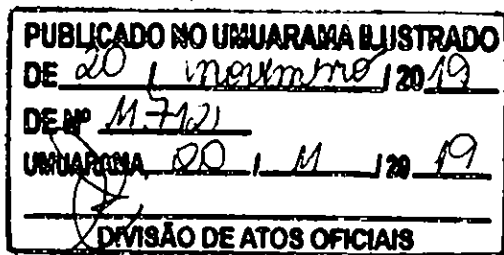 PUBLICADO NO UMUARAMA ILUSTRADO
DE 20 / novembro / 20 19
DE Nº 11.721
UMUARAMA, 20 / 11 / 20 19
DIVISÃO DE ATOS OFICIAIS